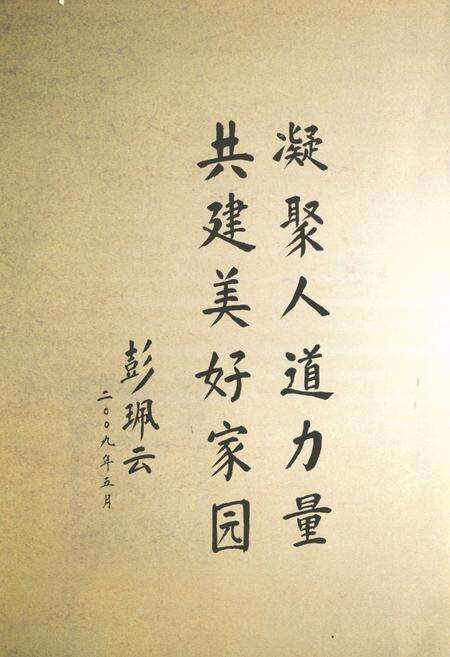 凝聚人道力量
共建美好家园
彭珮云
二〇〇九年五月